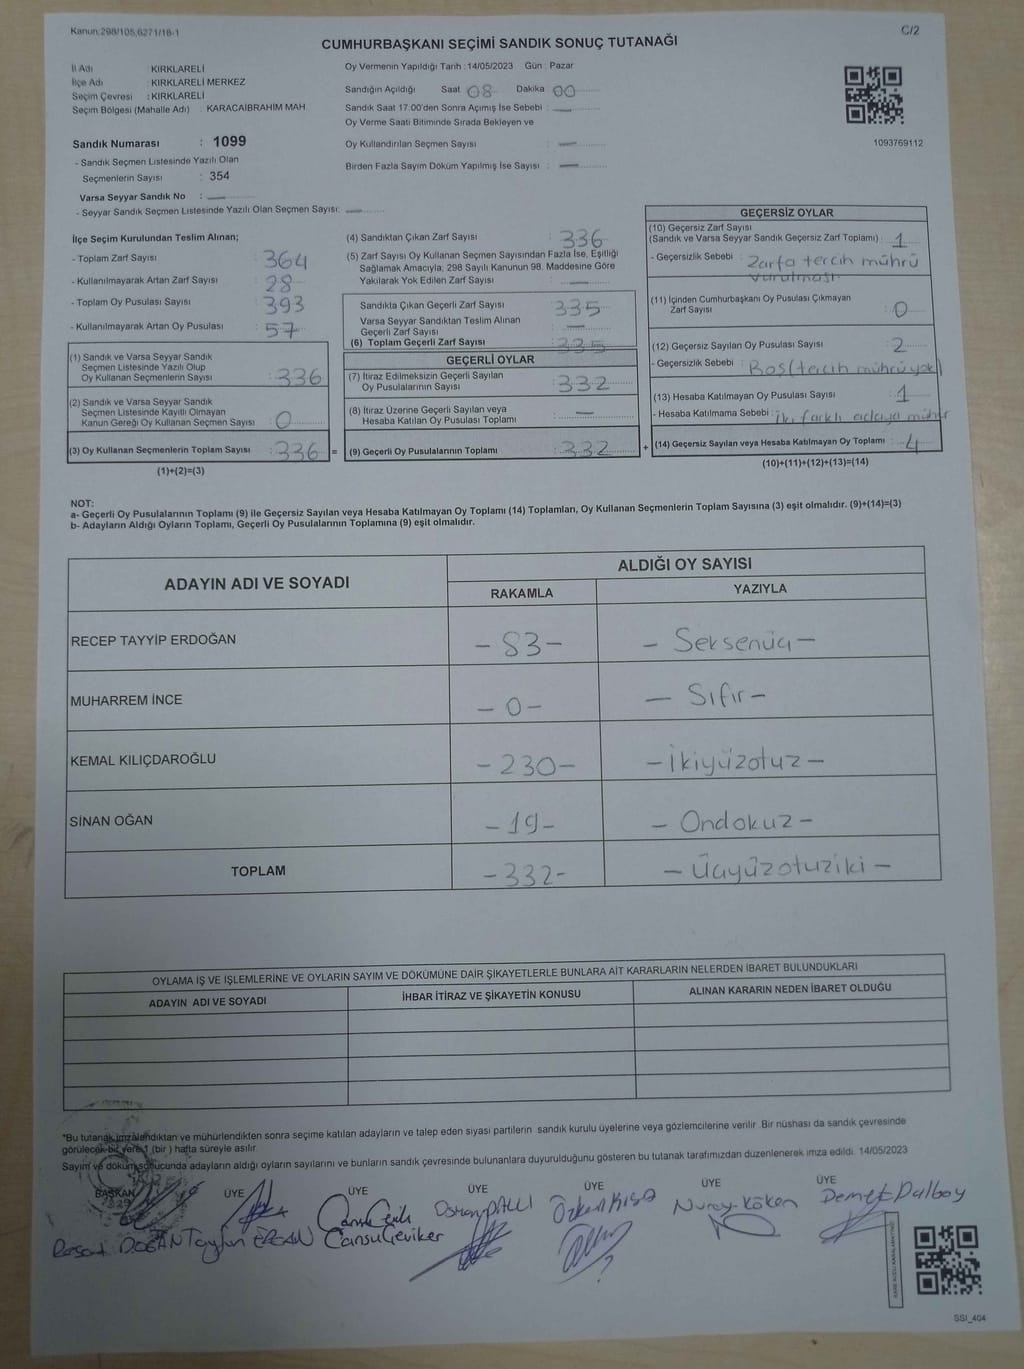 Kanun:298/105,6271/18-1
C/2
CUMHURBAŞKANI SEÇİMİ SANDIK SONUÇ TUTANAĞI
İl Adı : KIRKLARELİ
İlçe Adı : KIRKLARELİ MERKEZ
Seçim Çevresi : KIRKLARELİ
Seçim Bölgesi (Mahalle Adı) : KARACAİBRAHİM MAH.
Sandık Numarası : 1099
- Sandık Seçmen Listesinde Yazılı Olan
Seçmenlerin Sayısı : 354
Varsa Seyyar Sandık No : —
- Seyyar Sandık Seçmen Listesinde Yazılı Olan Seçmen Sayısı: —
Oy Vermenin Yapıldığı Tarih :14/05/2023 Gün : Pazar
Sandığın Açıldığı Saat 08 Dakika 00
Sandık Saat 17.00'den Sonra Açımış İse Sebebi : —
Oy Verme Saati Bitiminde Sırada Bekleyen ve
Oy Kullandırılan Seçmen Sayısı : —
Birden Fazla Sayım Döküm Yapılmış İse Sayısı : —
1093769112
İlçe Seçim Kurulundan Teslim Alınan;
- Toplam Zarf Sayısı : 364
- Kullanılmayarak Artan Zarf Sayısı : 28
- Toplam Oy Pusulası Sayısı : 393
- Kullanılmayarak Artan Oy Pusulası : 57
(1) Sandık ve Varsa Seyyar Sandık
Seçmen Listesinde Yazılı Olup
Oy Kullanan Seçmenlerin Sayısı : 336
(2) Sandık ve Varsa Seyyar Sandık
Seçmen Listesinde Kayıtlı Olmayan
Kanun Gereği Oy Kullanan Seçmen Sayısı : 0
(3) Oy Kullanan Seçmenlerin Toplam Sayısı : 336
(1)+(2)=(3)
(4) Sandıktan Çıkan Zarf Sayısı : 336
(5) Zarf Sayısı Oy Kullanan Seçmen Sayısından Fazla İse, Eşitliği
Sağlamak Amacıyla; 298 Sayılı Kanunun 98. Maddesine Göre
Yakılarak Yok Edilen Zarf Sayısı : —
Sandıkta Çıkan Geçerli Zarf Sayısı : 335
Varsa Seyyar Sandıktan Teslim Alınan
Geçerli Zarf Sayısı : —
(6) Toplam Geçerli Zarf Sayısı : 335
GEÇERLİ OYLAR
(7) İtiraz Edilmeksizin Geçerli Sayılan
Oy Pusulalarının Sayısı : 332
(8) İtiraz Üzerine Geçerli Sayılan veya
Hesaba Katılan Oy Pusulası Toplamı : —
= (9) Geçerli Oy Pusulalarının Toplamı : 332
GEÇERSİZ OYLAR
(10) Geçersiz Zarf Sayısı
(Sandık ve Varsa Seyyar Sandık Geçersiz Zarf Toplamı) : 1
- Geçersizlik Sebebi : Zarfa tercih mührü
vurulması
(11) İçinden Cumhurbaşkanı Oy Pusulası Çıkmayan
Zarf Sayısı : 0
(12) Geçersiz Sayılan Oy Pusulası Sayısı : 2
- Geçersizlik Sebebi : Boş (tercih mührü yok)
(13) Hesaba Katılmayan Oy Pusulası Sayısı : 1
- Hesaba Katılmama Sebebi : İki farklı adaya mühür
+ (14) Geçersiz Sayılan veya Hesaba Katılmayan Oy Toplamı : 4
(10)+(11)+(12)+(13)=(14)
NOT:
a- Geçerli Oy Pusulalarının Toplamı (9) ile Geçersiz Sayılan veya Hesaba Katılmayan Oy Toplamı (14) Toplamları, Oy Kullanan Seçmenlerin Toplam Sayısına (3) eşit olmalıdır. (9)+(14)=(3)
b- Adayların Aldığı Oyların Toplamı, Geçerli Oy Pusulalarının Toplamına (9) eşit olmalıdır.
ADAYIN ADI VE SOYADI
ALDIĞI OY SAYISI
RAKAMLA YAZIYLA
RECEP TAYYİP ERDOĞAN - 83 - - Seksenüç -
MUHARREM İNCE - 0 - - Sıfır -
KEMAL KILIÇDAROĞLU - 230 - - İkiyüzotuz -
SİNAN OĞAN - 19 - - Ondokuz -
TOPLAM - 332 - - Üçyüzotuziki -
OYLAMA İŞ VE İŞLEMLERİNE VE OYLARIN SAYIM VE DÖKÜMÜNE DAİR ŞİKAYETLERLE BUNLARA AİT KARARLARIN NELERDEN İBARET BULUNDUKLARI
ADAYIN ADI VE SOYADI İHBAR İTİRAZ VE ŞİKAYETİN KONUSU ALINAN KARARIN NEDEN İBARET OLDUĞU
*Bu tutanak imzalandıktan ve mühürlendikten sonra seçime katılan adayların ve talep eden siyasi partilerin sandık kurulu üyelerine veya gözlemcilerine verilir. Bir nüshası da sandık çevresinde
görülecek bir yere 1 (bir) hafta süreyle asılır.
Sayım ve döküm sonucunda adayların aldığı oyların sayılarını ve bunların sandık çevresinde bulunanlara duyurulduğunu gösteren bu tutanak tarafımızdan düzenlenerek imza edildi. 14/05/2023
BAŞKAN ÜYE ÜYE ÜYE ÜYE ÜYE ÜYE
DOĞAN Cansu Geviker Nuray Köken Demet Dalboy
SSI_404